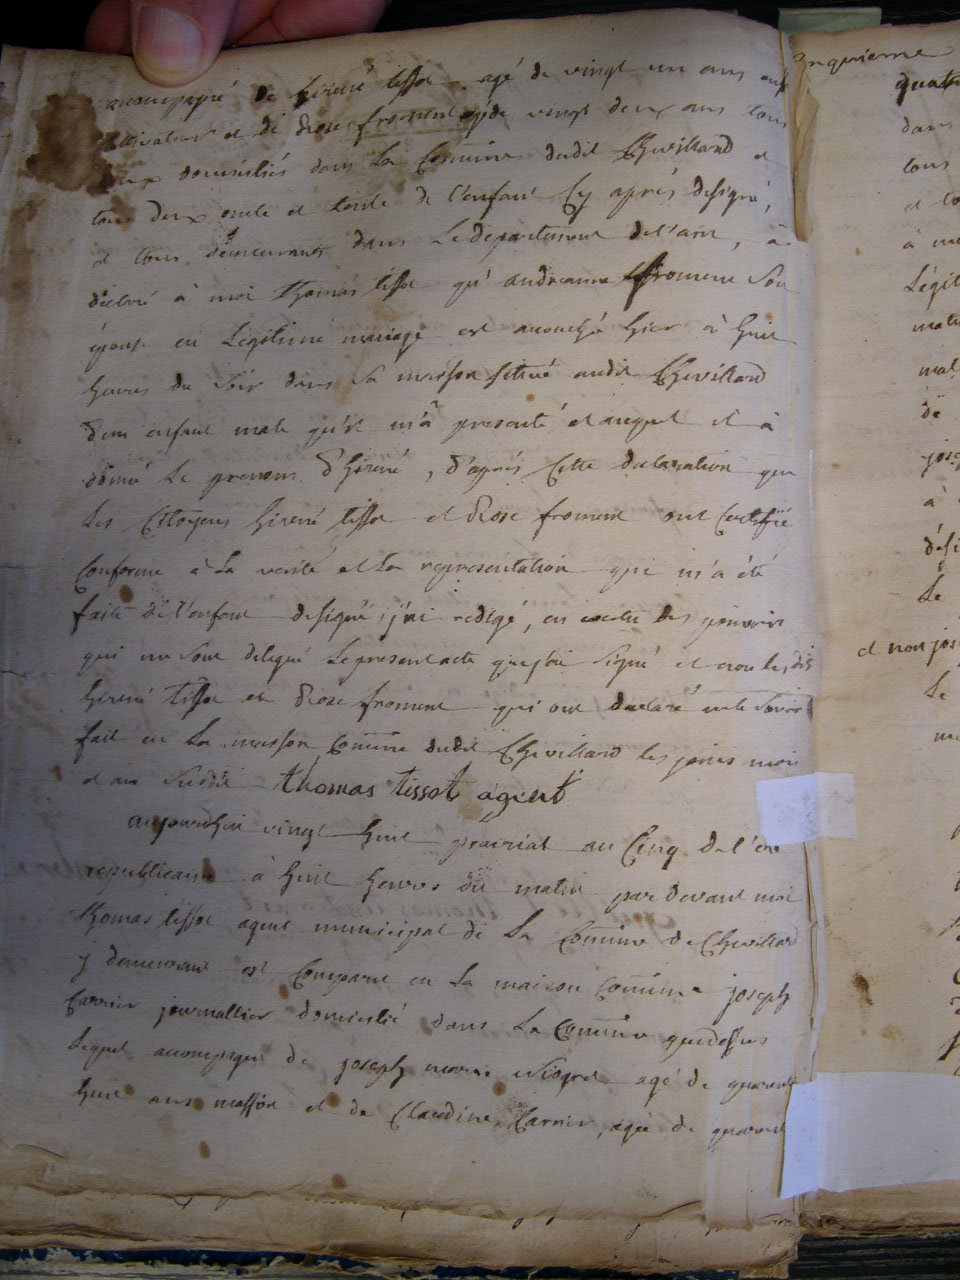 accompagné de hirené tissot agé de vingt un ans
cultivateur et de Rose froment agé de vingt deux ans tous
deux domiciliés dans la Commune dudit Chevillard et
tous deux oncle et tente de l'enfant Cy après designé,
et tous demeurants dans Le departement de l'ain, a
declaré à moi thomas tissot qu' andreanne froment Son
épouse en Légitime mariage est accouché hier à huit
heures du Soir dans Sa maison situé audit Chevillard
d'un enfant male qu'il m'à presenté et auquel il à
donné Le prenom d'hirené, d'après Cette declaration que
Les Citoyens hirené tissot et Rose froment ont Certiffié
Conforme à La verité et La representation qui m'a été
faite de l'enfant designé, j'ai redigé, en vertu des pouvoirs
qui me Sont delegué Le present acte que j'ai Signé et non les dis
hirené tissot et Rose froment qui ont declaré ne le Savoir
fait en La maison Commune dudit Chevillard les jours mois
et an Susdit thomas tissot agent
aujourdhui vingt huit prairial an Cinq de l'ere
republicaine à huit heures du matin par devant moi
thomas tissot agent municipal de La Commune de Chevillard
y demeurant est Comparu en La maison Commune joseph
Carrier journallier domicilié dans La Commune que dessus
Lequel accompagné de joseph marie agé de quarante
huit ans masson et de Claudine Carrier, agée de quarante
quatre
dans
tous
à
Légit
mat
de
à
Le
et non jos
Le